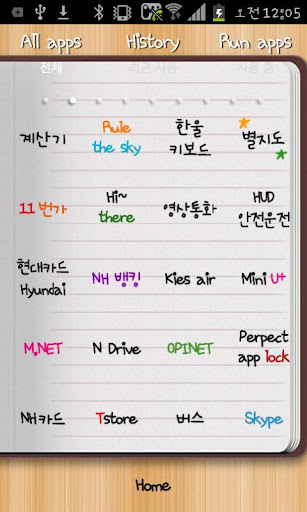 오전 12:05
All apps History Run apps
전체 최근 사용 사용 중
계산기 Rule the sky 한울 키보드 별지도
11 번가 Hi~ there 영상통화 HUD 안전운전
현대카드 Hyundai NH 뱅킹 Kies air Mini U+
M.NET N Drive OPINET Perpect app lock
NH카드 Tstore 버스 Skype
Home